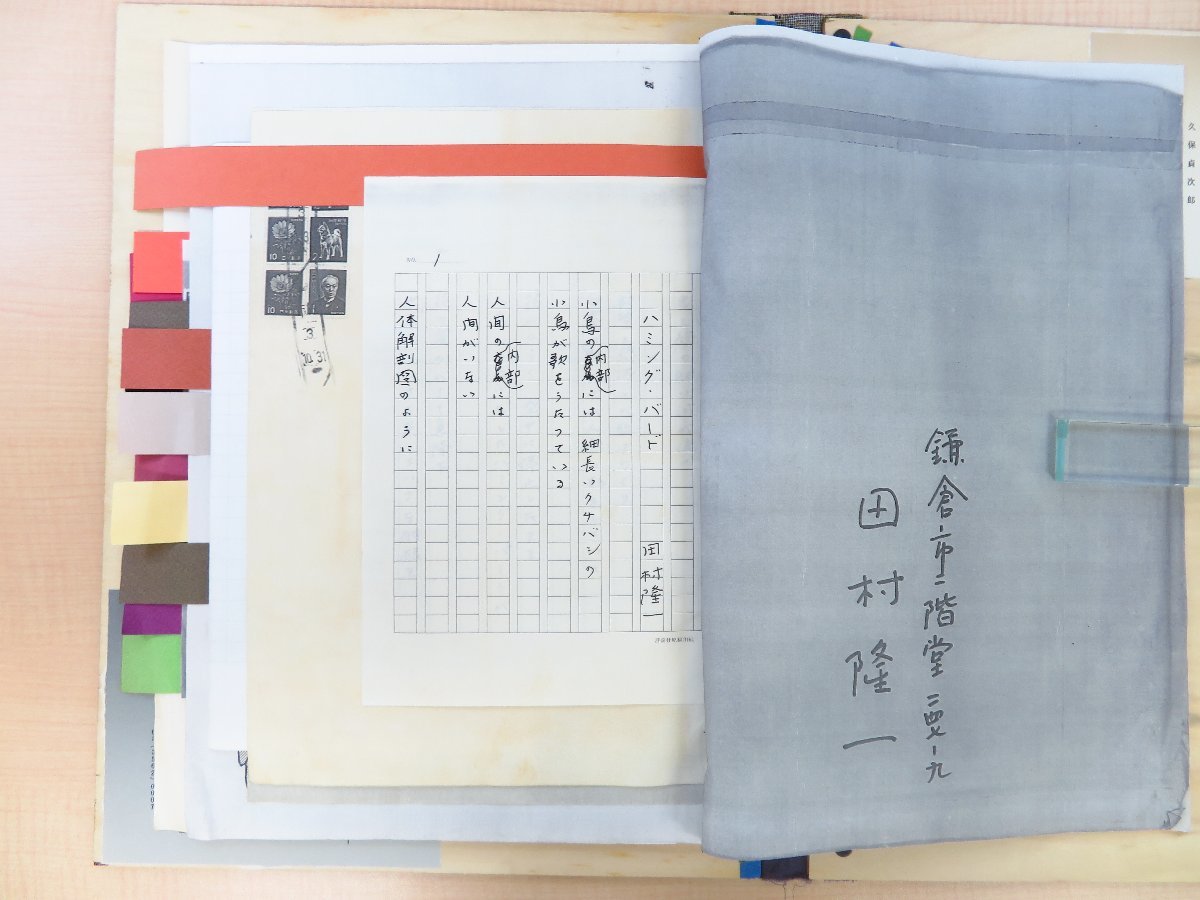 久保貞次郎
鎌倉市二階堂二四七-九
田村隆一
NO. 1
ハミング・バード
田村隆一
小鳥の内部には 細長いクチバシの
小鳥が歌をうたっている
人間の内部には
人間がいない
人体解剖図のように
10
10